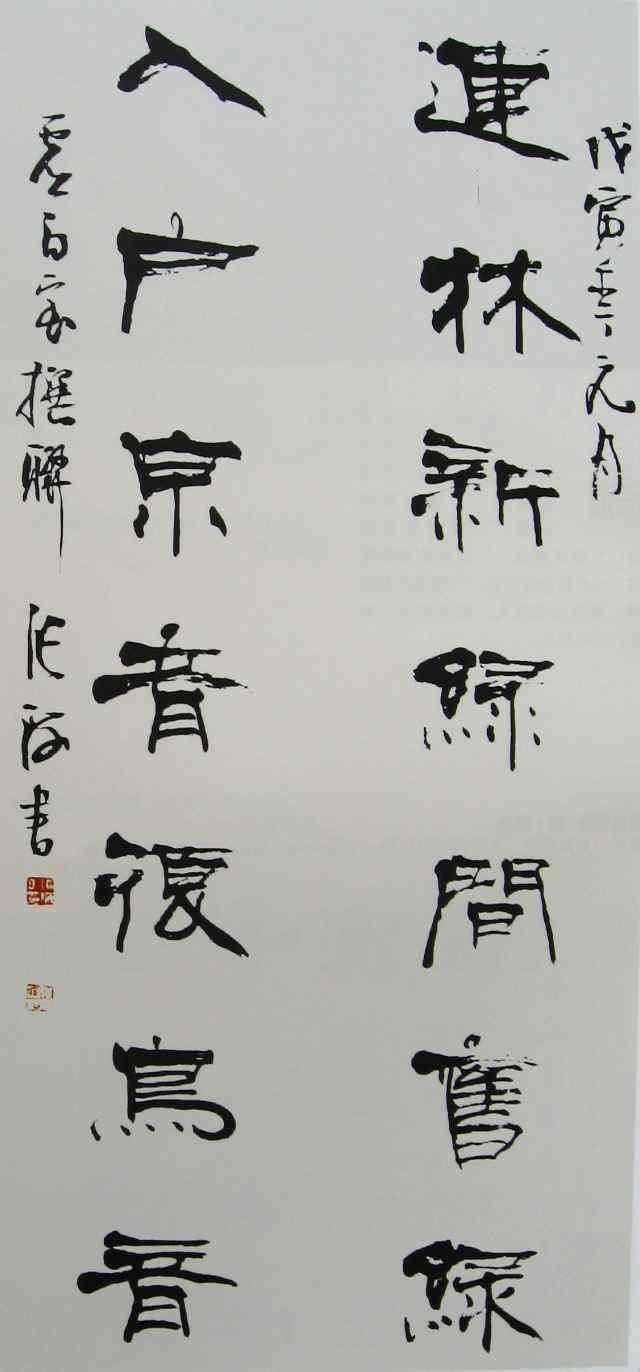 戊寅年元月
連林新綠間舊綠
入户京音復鳥音
虛白 撰聯 張海書